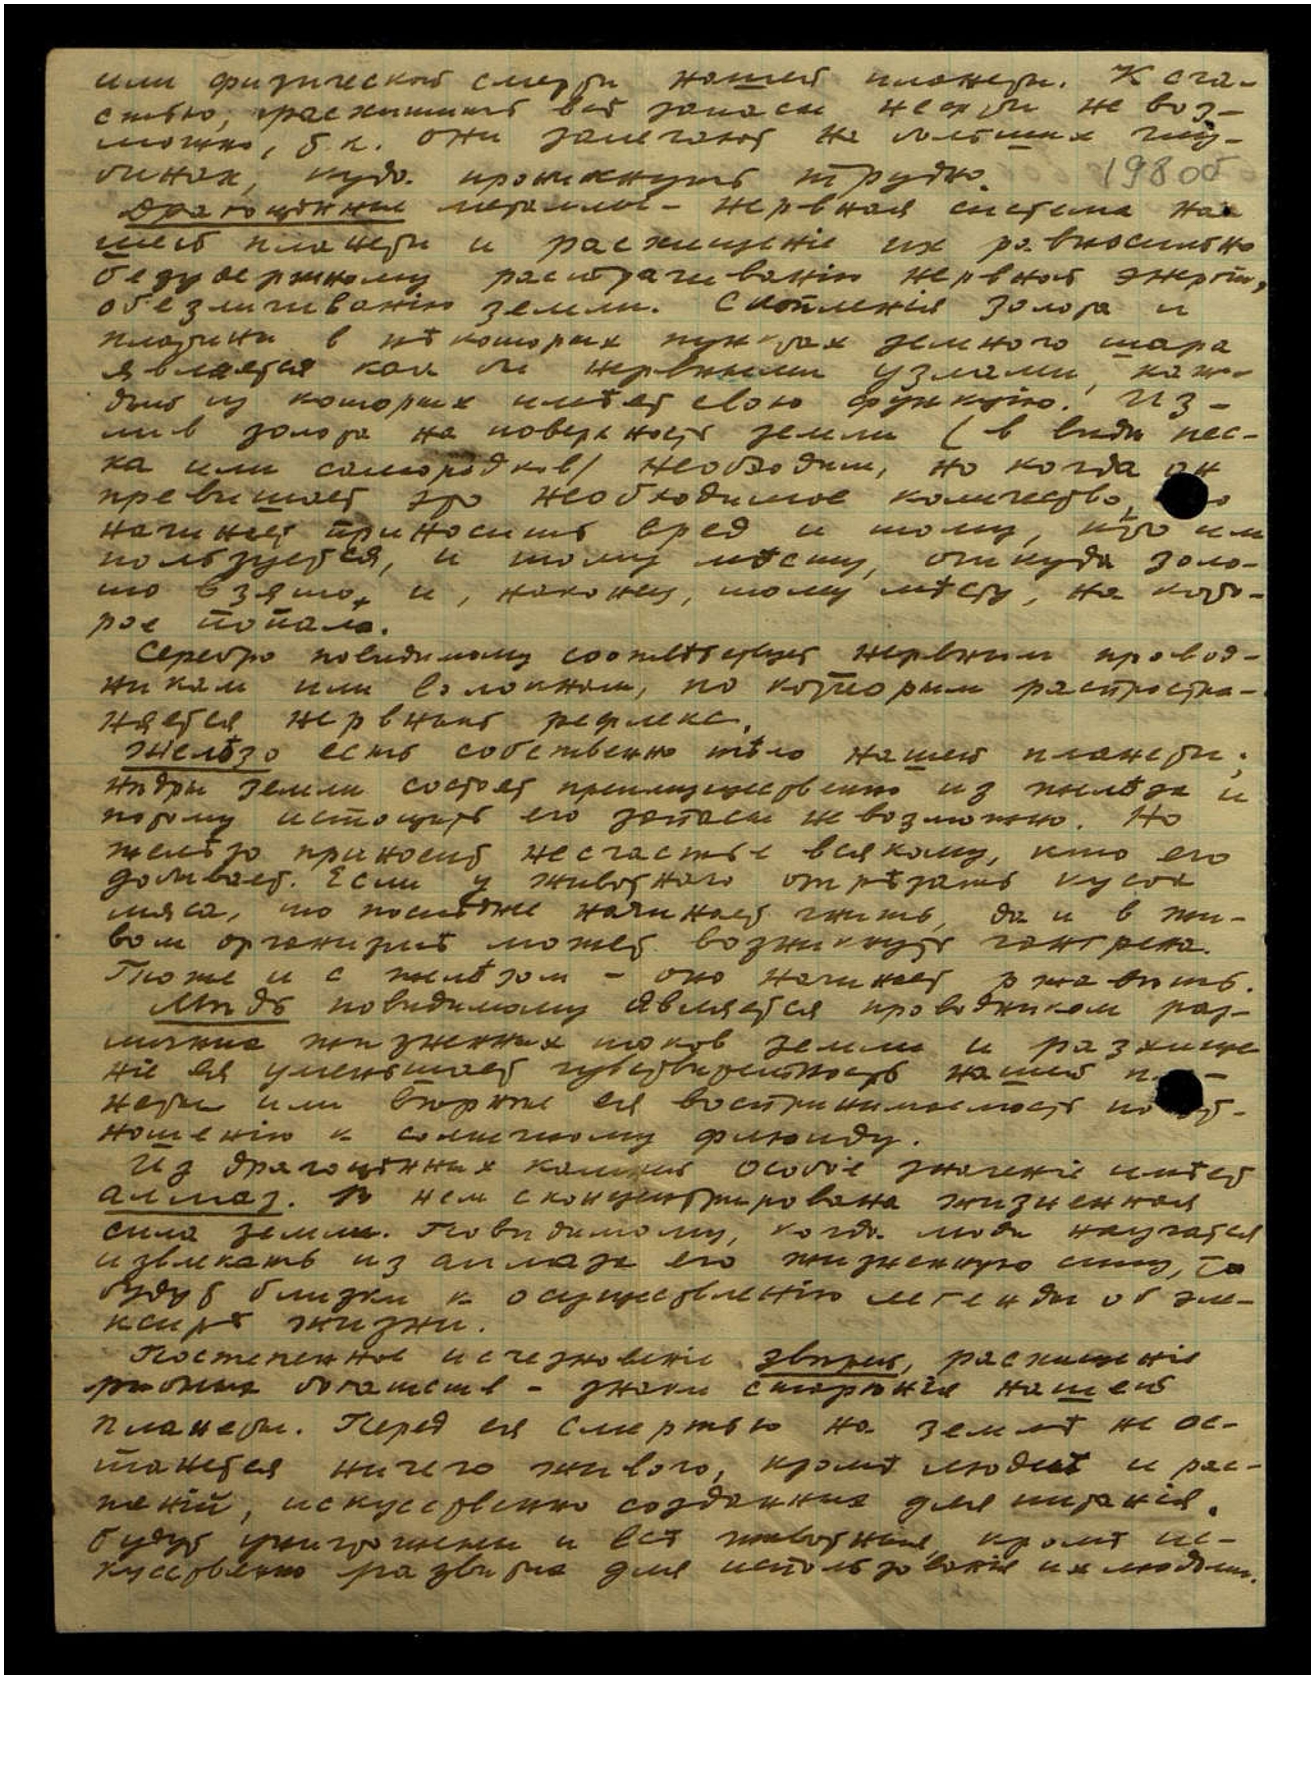 или физической смерти нашей планеты. К сча-
стью, расхитить всѣ запасы нефти не воз-
можно, т.к. они залегают на больших глу-
бинах, куда проникнуть трудно.
198 об
Драгоцѣнные металлы – нервная система на-
шей планеты и расхищеніе их равносильно
безудержному растрачиванію нервной энергіи,
обезличиванію земли. Скопленія золота и
платины в нѣкоторых пунктах земного шара
является как бы нервными узлами, каж-
дый из которых имѣет свою функцію. Из-
лив золота на поверхность земли (в видѣ пес-
ка или самородков) необходим, но когда он
превышает это необходимое количество, то
начинает приносить вред и тому, кто им
пользуется, и тому мѣсту, откуда золо-
то взято, и, наконец, тому мѣсту, на кото-
рое попало.
Серебро повидимому соотвѣтствует нервным провод-
никам или волокнам, по которым распростра-
няется нервный рефлекс.
Желѣзо есть собственно тѣло нашей планеты;
нѣдры земли состоят преимущественно из желѣза и
потому истощить его запасы невозможно. Но
желѣзо приносит несчастье всякому, кто его
добывает. Если у животнаго отрѣзать кусок
мяса, то послѣднее начинает гнить, да и в жи-
вом организмѣ может возникнуть гангрена.
Тоже и с желѣзом – оно начинает ржавѣть.
Мѣдь повидимому является проводником раз-
личных жизненных токов земли и расхище
ніе ея уменьшает чувствительность нашей пла-
неты или вѣрнѣе ея воспринимаемость по от-
ношенію к солнечному флюиду.
Из драгоцѣнных камней особое значеніе имѣет
алмаз. В нем сконцентрирована жизненная
сила земли. Повидимому, когда люди научатся
извлекать из алмаза его жизненную силу, то
будут близки к осуществленію легенды об эле-
ксирѣ жизни.
Постепенное исчезновеніе звѣрей, расхищеніе
рыбных богатств – знаки старѣнія нашей
планеты. Перед ея смертью на землѣ не ос-
танется ничего живого, кромѣ людей и рас-
теній, искусственно созданных для питанія.
Будут уничтожены и всѣ животныя, кромѣ ис-
кусственно развитых для использованія их людьми.